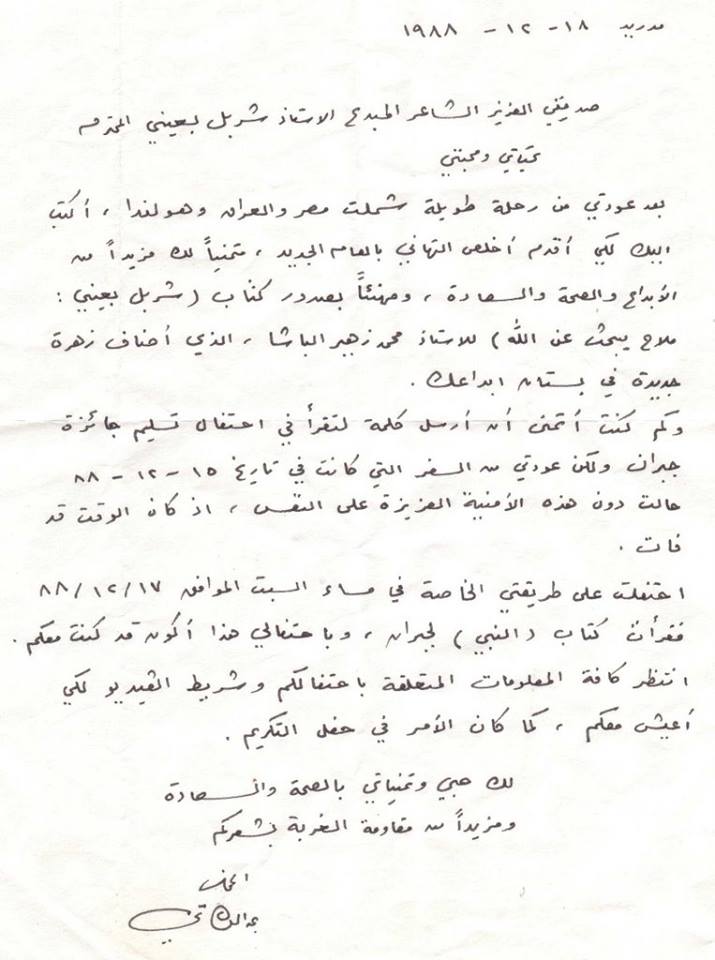 مدريد ١٨ - ١٢ - ١٩٨٨
صديقي العزيز الشاعر المبدع الاستاذ شربل بعيني المحترم
تحياتي ومحبتي
بعد عودتي من رحلة طويلة شملت مصر والعراق وهولندا ، أكتب
اليك لكي أقدم أخلص التهاني بالعام الجديد ، متمنياً لك مزيداً من
الأبداع والصحة والسعادة ، ومهنئاً بصدور كتاب ( شربل بعيني :
ملاح يبحث عن الله ) للاستاذ محمد زهير الباشا ، الذي أضاف زهرة
جديدة في بستان ابداعك .
وكم كنت أتمنى أن أرسل كلمة لتقرأ في احتفال تسليم جائزة
جبران ولكن عودتي من السفر التي كانت في تاريخ ١٥ - ١٢ - ٨٨
حالت دون هذه الأمنية العزيزة على النفس ، اذ كان الوقت قد
فات .
احتفلت على طريقتي الخاصة في مساء السبت الموافق ٨٨/١٢/١٧
فقرأت كتاب ( النبي ) لجبران ، وباحتفالي هذا أكون قد كنت معكم .
انتظر كافة المعلومات المتعلقة باحتفالكم وشريط الفيديو لكي
أعيش معكم ، كما كان الأمر في حفل التكريم .
لك حبي وتمنياتي بالصحة والسعادة
ومزيداً من مقاومة الغربة بشعركم
المخلص